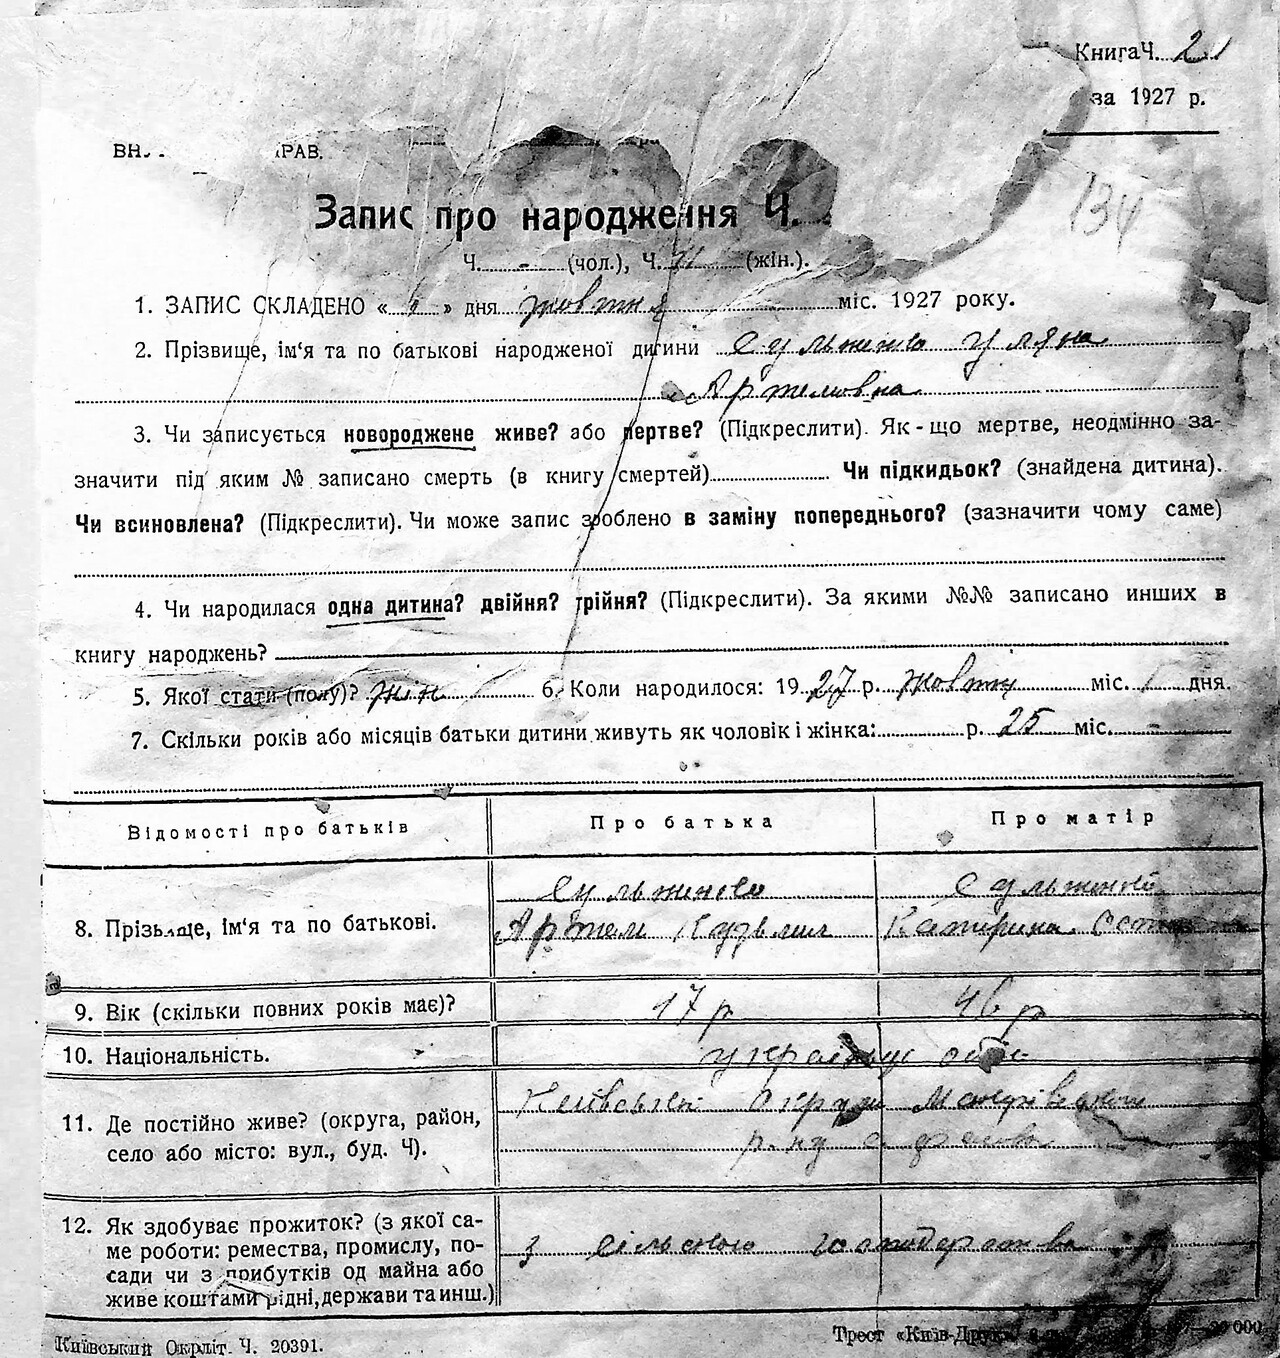 Книга Ч. 2
за 1927 р.
РАВ.
134
Запис про народження Ч.
Ч. - (чол.), Ч. (жін.).
1. ЗАПИС СКЛАДЕНО « » дня жовтня міс. 1927 року.
2. Прізвище, ім'я та по батькові народженої дитини Сульженко Уляна
Артемовна
3. Чи записується новороджене живе? або мертве? (Підкреслити). Як-що мертве, неодмінно за-
значити під яким № записано смерть (в книгу смертей) Чи підкидьок? (знайдена дитина).
Чи всиновлена? (Підкреслити). Чи може запис зроблено в заміну попереднього? (зазначити чому саме)
4. Чи народилася одна дитина? двійня? трійня? (Підкреслити). За якими №№ записано инших в
книгу народжень?
5. Якої стати (полу)? жін 6. Коли народилося: 1927 р. жовтня міс. 1 дня.
7. Скільки років або місяців батьки дитини живуть як чоловік і жінка: р. 25 міс. -
Відомості про батьків Про батька Про матір
8. Прізвище, ім'я та по батькові. Сульженко Артем Сульженко Катерина
9. Вік (скільки повних років має)? 17 р 46 р
10. Національність.
11. Де постійно живе? (округа, район, Київської Округи
село або місто: вул., буд. Ч).
12. Як здобуває прожиток? (з якої са-
ме роботи: ремества, промислу, по- з сільского господарства
сади чи з прибутків од майна або
живе коштами рідні, держави та инш.)
Київський Окрліт. Ч. 20391. Трест «Київ-Друк»